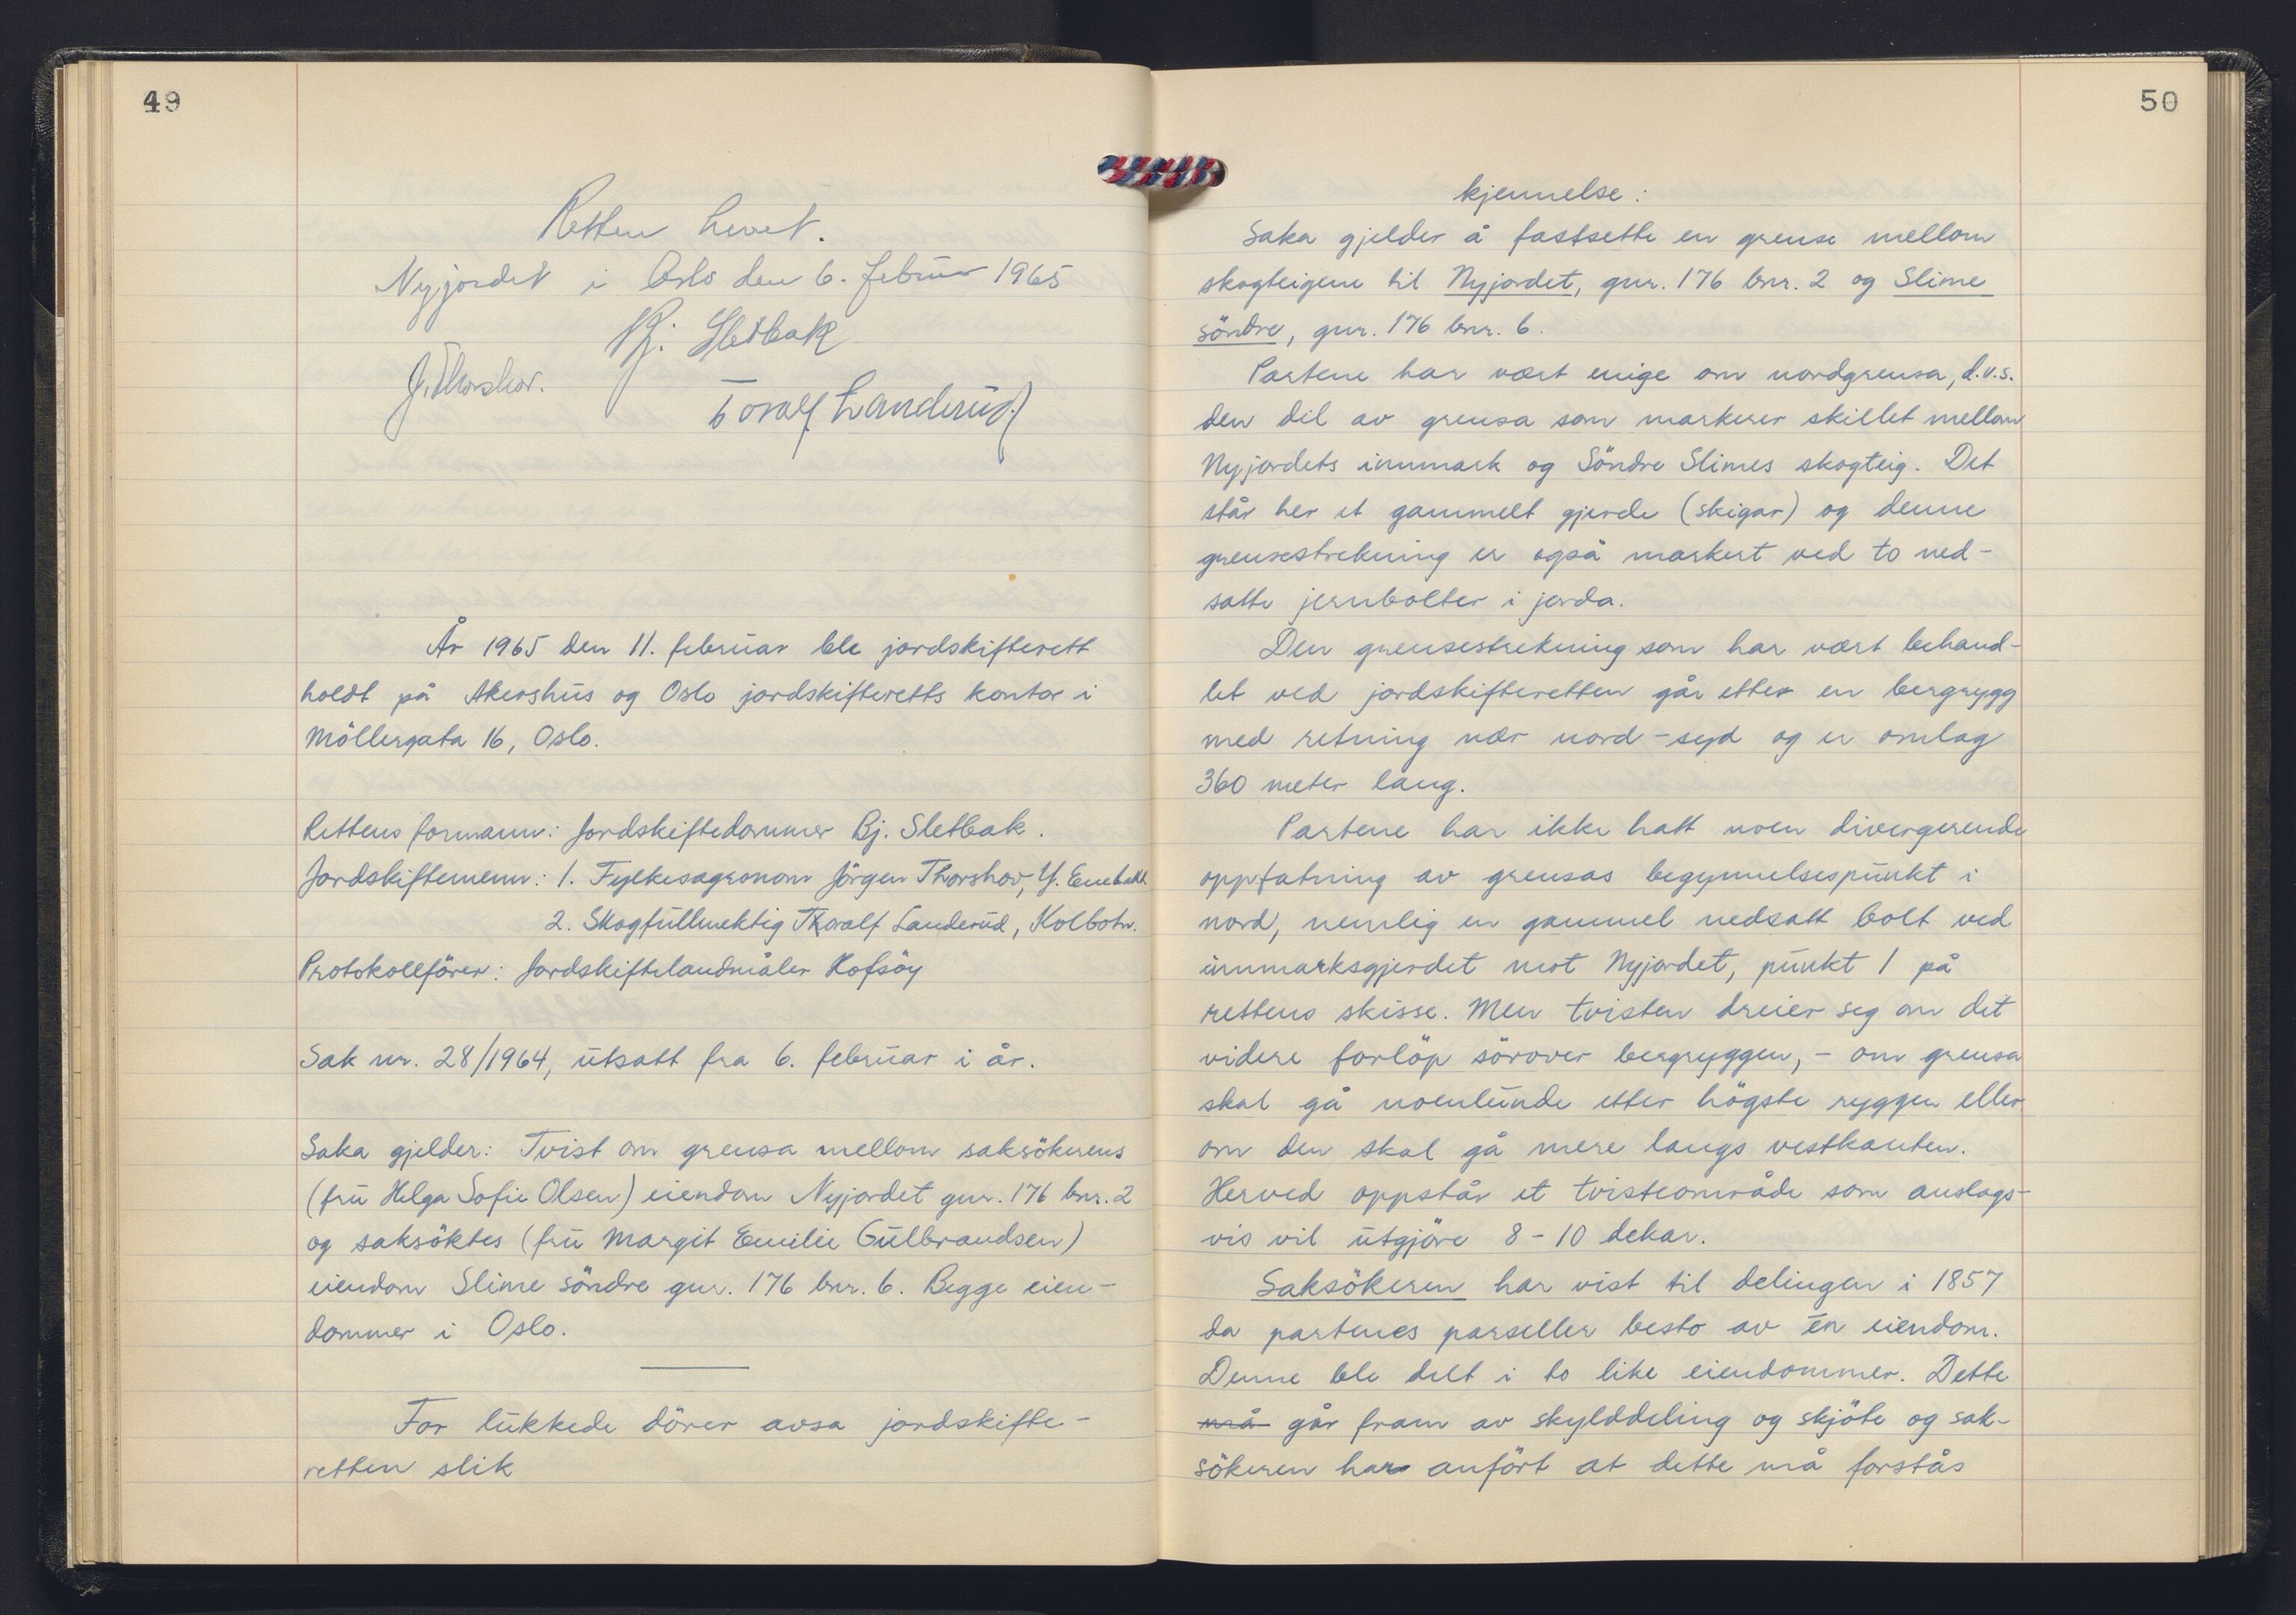 49
Retten hevet.
Nyjordet i Oslo den 6. februar 1965
Bj. Sletbak
J. Thorshov.
Toralf Landerud
År 1965 den 11. februar ble jordskifterett
holdt på Akershus og Oslo jordskifteretts kontor i
Möllergata 16, Oslo.
Rettens formann: Jordskiftedommer Bj. Sletbak.
Jordskiftemenn: 1. Fylkesagronom Jörgen Thorshov, Y. Enebakk
2. Skogfullmektig Thoralf Landerud, Kolbotn.
Protokollförer: Jordskiftelandmåler Hofsöy
Sak nr. 28/1964, utsatt fra 6. februar i år.
Saka gjelder: Tvist om grensa mellom saksökerens
(fru Helga Sofie Olsen) eiendom Nyjordet gnr. 176 bnr. 2
og saksöktes (fru Margit Emilie Gulbrandsen)
eiendom Slime söndre gnr. 176 bnr. 6. Begge eien-
dommer i Oslo.
For lukkede dörer avsa jordskifte-
retten slik
50
kjennelse:
Saka gjelder å fastsette en grense mellom
skogteigene til Nyjordet, gnr. 176 bnr. 2 og Slime
söndre, gnr. 176 bnr. 6.
Partene har vært enige om nordgrensa, d.v.s.
den del av grensa som markerer skillet mellom
Nyjordets innmark og Söndre Slimes skogteig. Det
står her et gammelt gjerde (skigar) og denne
grensestrekning er også markert ved to ned-
satte jernbolter i jorda.
Den grensestrekning som har vært behand-
let ved jordskifteretten går etter en bergrygg
med retning nær nord-syd og er omlag
360 meter lang.
Partene har ikke hatt noen divergerende
oppfatning av grensas begynnelsespunkt i
nord, nemlig en gammel nedsatt bolt ved
innmarksgjerdet mot Nyjordet, punkt 1 på
rettens skisse. Men tvisten dreier seg om det
videre forlöp sörover bergryggen, - om grensa
skal gå noenlunde etter högste ryggen eller
om den skal gå mere langs vestkanten.
Herved oppstår et tvisteområde som anslags-
vis vil utgjöre 8-10 dekar.
Saksökeren har vist til delingen i 1857
da partenes parseller besto av en eiendom.
Denne ble delt i to like eiendommer. Dette
må går fram av skylddeling og skjöte og sak-
sökeren har anfört at dette må forstås